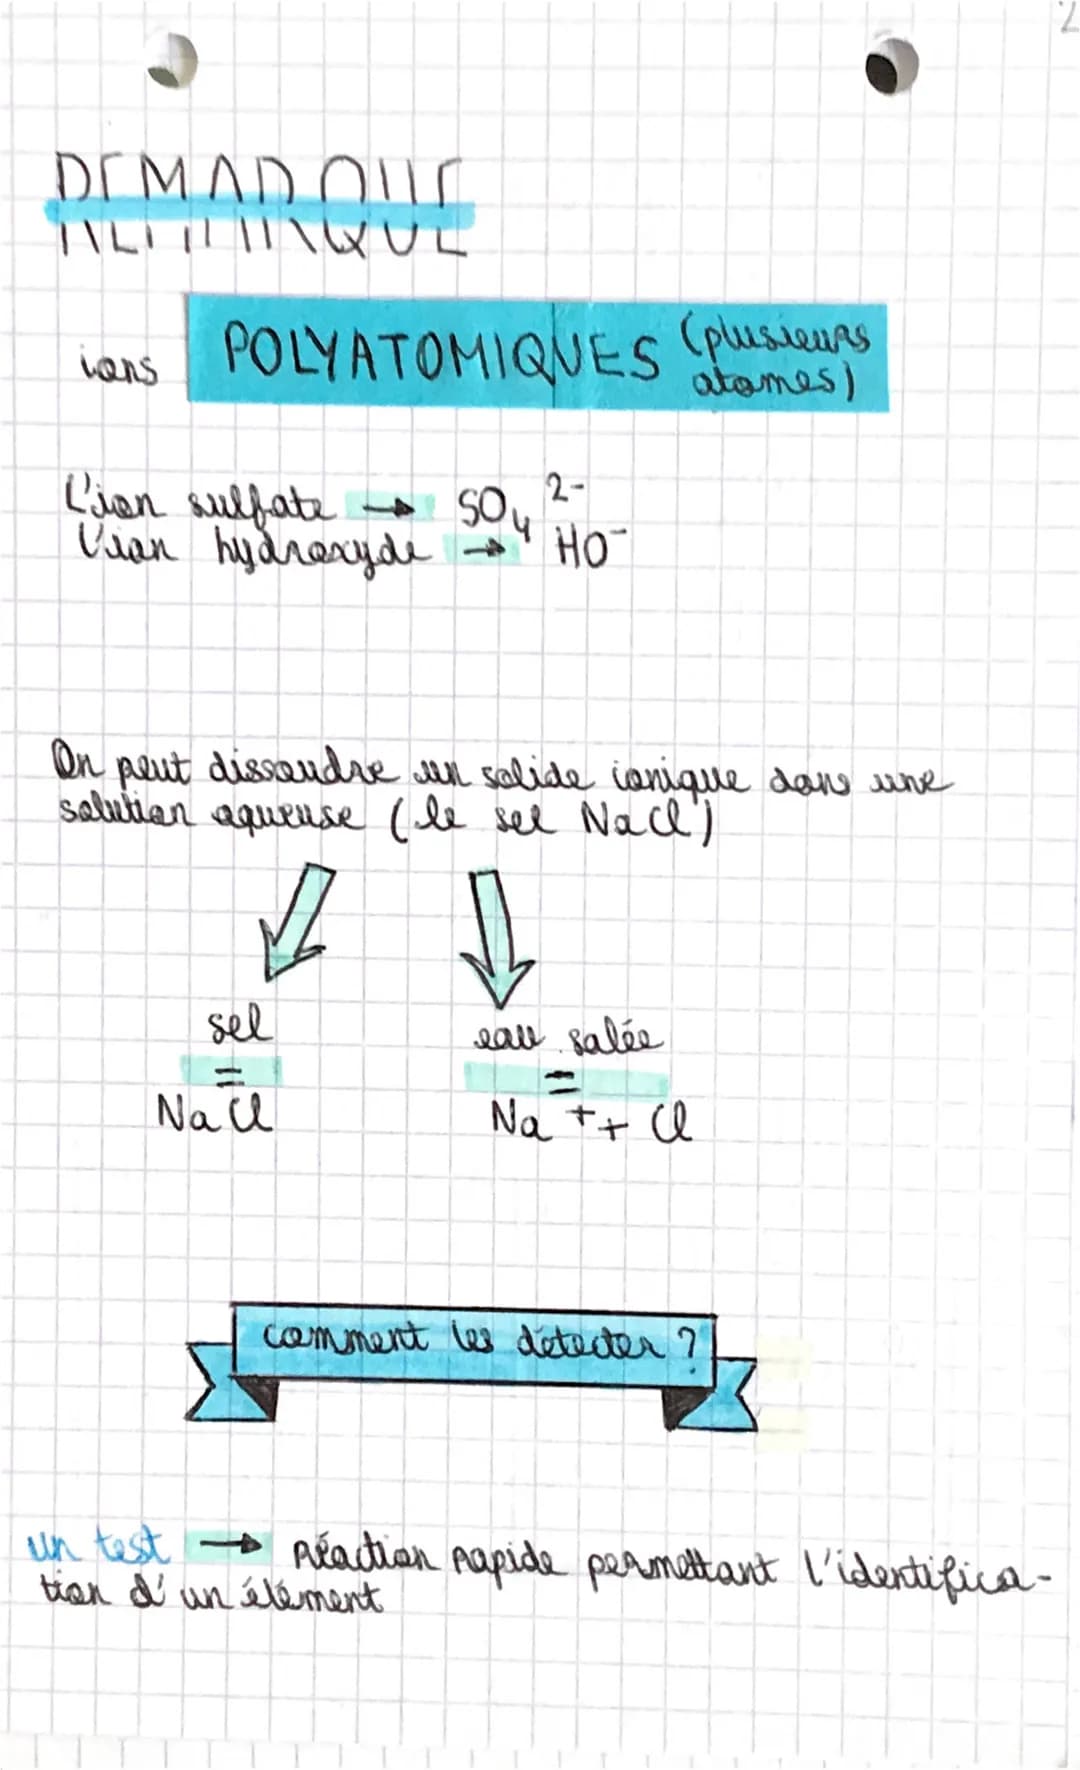 2
REMARQUE
ions POLYATOMIQUES (plusieurs
atomes)
L'ion sulfate → SO₄²⁻
L'ion hydroxyde → HO⁻
On peut dissoudre un solide ionique dans une
solution aqueuse (le sel NaCl)
sel
=
NaCl
eau salée
=
Na ⁺ + Cl
comment les détecter ?
un test → réaction rapide permettant l'identifica-
tion d'un élément